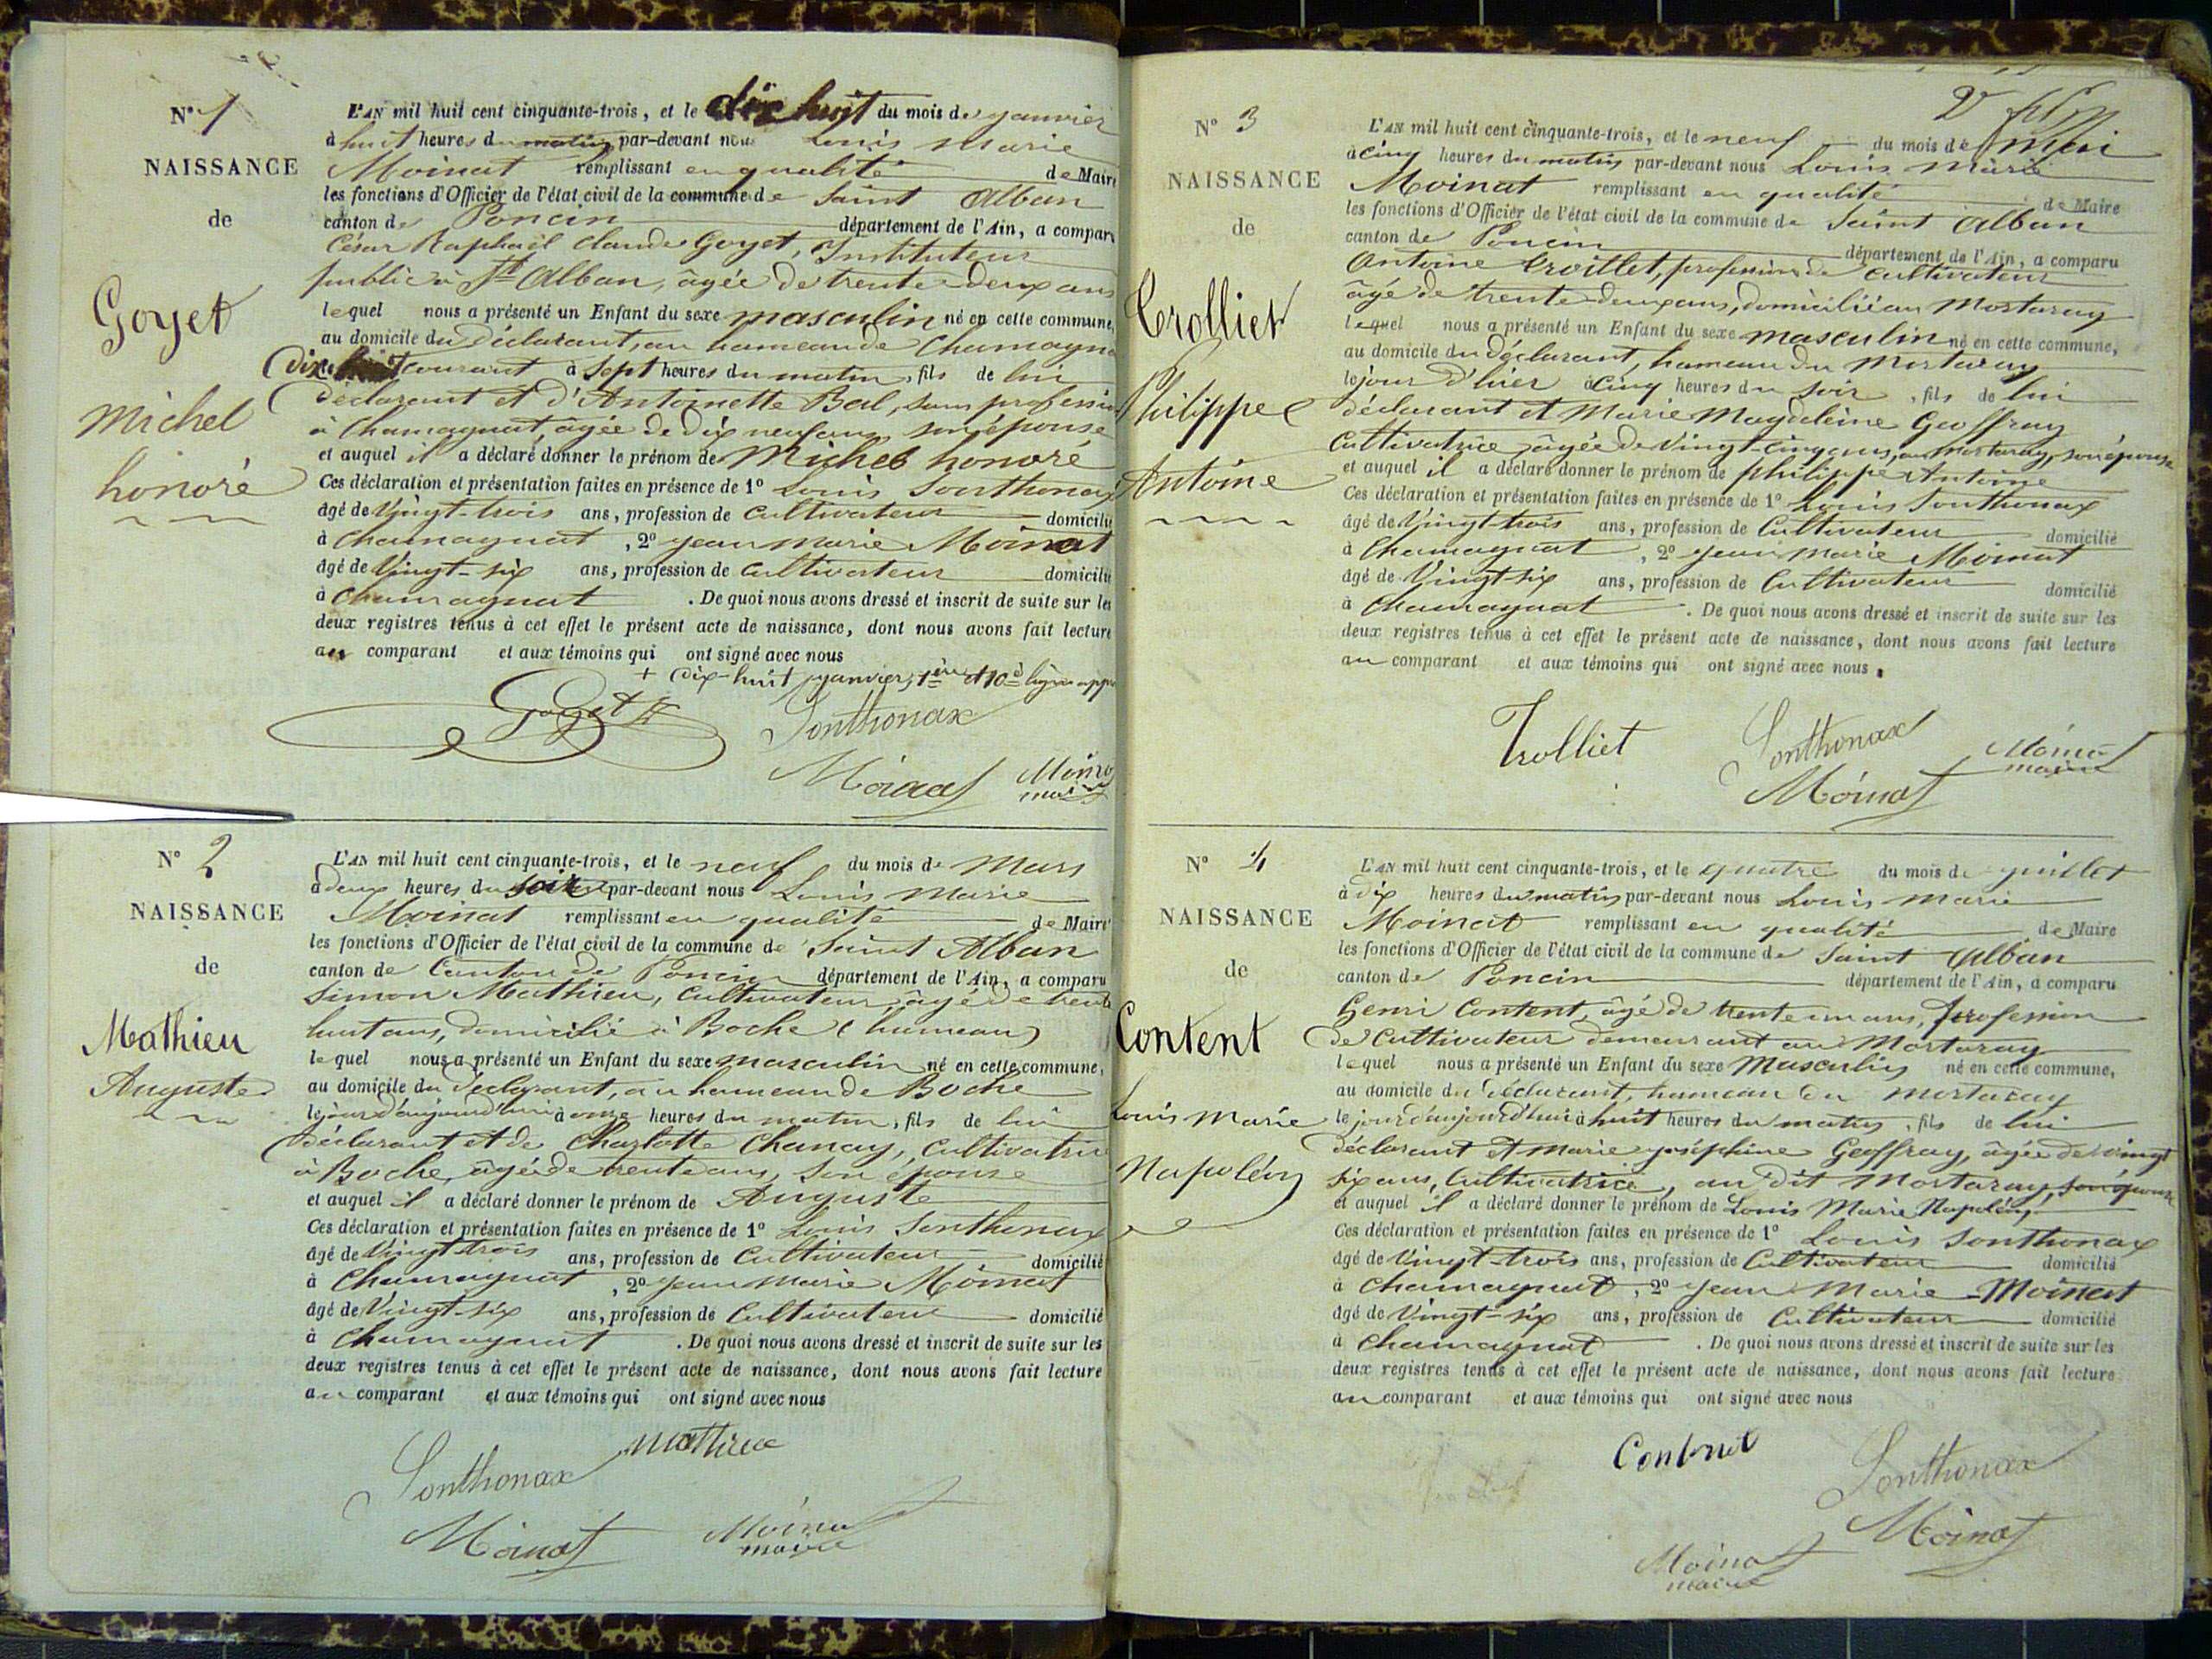 N° 1
NAISSANCE
de
Goyet
Michel
honoré
L'AN mil huit cent cinquante-trois, et le dix huit du mois de janvier
à huit heures du matin par-devant nous Louis Marie
Moinat remplissant en qualité de Maire
les fonctions d'Officier de l'état civil de la commune de Saint Alban
canton de Poncin département de l'Ain, a comparu
César Raphaël Claude Goyet, Instituteur
public à St Alban, âgée de trente-deux ans
lequel nous a présenté un Enfant du sexe masculin né en cette commune,
au domicile du déclarant, au hameau de Chamagn
dix huit courant à sept heures du matin, fils de lui
déclarant et d'Antoinette Bal, sans profession
à Chamagnat, âgée de dix neuf ans, son épouse
et auquel il a déclaré donner le prénom de Michel honoré
Ces déclaration et présentation faites en présence de 1° Louis Sonthonax
âgé de Vingt-trois ans, profession de cultivateur domicilié
à Chamagnat, 2° jean marie Moinat
âgé de Vingt-six ans, profession de cultivateur domicilié
à Chamagnat. De quoi nous avons dressé et inscrit de suite sur les
deux registres tenus à cet effet le présent acte de naissance, dont nous avons fait lecture
au comparant et aux témoins qui ont signé avec nous
+ dix-huit janvier, 1ère et 10e ligne app
Goyet
Sonthonax
Moinat Moina
maire
N° 2
NAISSANCE
de
Mathieu
Auguste
L'AN mil huit cent cinquante-trois, et le neuf du mois de Mars
à deux heures du soir par-devant nous Louis Marie
Moinat remplissant en qualité de Maire
les fonctions d'Officier de l'état civil de la commune de Saint Alban
canton de Canton de Poncin département de l'Ain, a comparu
Simon Mathieu, cultivateur, âgé de trente
huit ans, domicilié à Boche (hameau)
lequel nous a présenté un Enfant du sexe masculin né en cette commune,
au domicile du déclarant, au hameau de Boche
le jour d'aujourd'hui à onze heures du matin, fils de lui
déclarant et de Charlotte Chanay, cultivatrice
à Boche, âgée de trente ans, son épouse
et auquel il a déclaré donner le prénom de Auguste
Ces déclaration et présentation faites en présence de 1° Louis Sonthonax
âgé de Vingt trois ans, profession de Cultivateur domicilié
à Chamagnat, 2° jean marie Moinat
âgé de Vingt-six ans, profession de Cultivateur domicilié
à Chamagnat. De quoi nous avons dressé et inscrit de suite sur les
deux registres tenus à cet effet le présent acte de naissance, dont nous avons fait lecture
au comparant et aux témoins qui ont signé avec nous
Sonthonax mathieu
Moinat Moina
maire
N° 3
NAISSANCE
de
Trolliet
Philippe
Antoine
L'AN mil huit cent cinquante-trois, et le neuf du mois de mai
à cinq heures du matin par-devant nous Louis Marie
Moinat remplissant en qualité de Maire
les fonctions d'Officier de l'état civil de la commune de Saint Alban
canton de Poncin département de l'Ain, a comparu
Antoine Trolliet, profession de cultivateur
âgé de trente-deux ans, domicilié au Mortaray
lequel nous a présenté un Enfant du sexe masculin né en cette commune,
au domicile du déclarant, hameau du Mortaray
le jour d'hier à cinq heures du soir, fils de lui
déclarant et Marie Magdeleine Geoffray
Cultivatrice, âgée de vingt-cinq ans, au mortaray, son épouse
et auquel il a déclaré donner le prénom de philippe Antoine
Ces déclaration et présentation faites en présence de 1° Louis Sonthonax
âgé de Vingt-trois ans, profession de Cultivateur domicilié
à Chamagnat, 2° jean marie Moinat
âgé de Vingt six ans, profession de Cultivateur domicilié
à Chamagnat. De quoi nous avons dressé et inscrit de suite sur les
deux registres tenus à cet effet le présent acte de naissance, dont nous avons fait lecture
au comparant et aux témoins qui ont signé avec nous.
Trolliet Sonthonax Moina
maire
Moinat
N° 4
NAISSANCE
de
Content
Louis Marie
Napoléon
L'AN mil huit cent cinquante-trois, et le quatre du mois de juillet
à dix heures du matin par-devant nous Louis Marie
Moinat remplissant en qualité de Maire
les fonctions d'Officier de l'état civil de la commune de Saint Alban
canton de Poncin département de l'Ain, a comparu
Henri Content, âgé de trente un ans, profession
de Cultivateur demeurant au Mortaray
lequel nous a présenté un Enfant du sexe Masculin né en cette commune,
au domicile du déclarant, hameau du mortaray
le jour d'aujourd'hui à huit heures du matin, fils de lui
déclarant et marie joséphine Geoffray, âgée de vingt
six ans, Cultivatrice, au dit Mortaray, son épouse
et auquel il a déclaré donner le prénom de Louis Marie Napoléon
Ces déclaration et présentation faites en présence de 1° Louis Sonthonax
âgé de Vingt-trois ans, profession de Cultivateur domicilié
à Chamagnat, 2° jean Marie Moinat
âgé de Vingt-six ans, profession de Cultivateur domicilié
à Chamagnat. De quoi nous avons dressé et inscrit de suite sur les
deux registres tenus à cet effet le présent acte de naissance, dont nous avons fait lecture
au comparant et aux témoins qui ont signé avec nous
Contnet
Sonthonax
Moinat
Moinat
maire